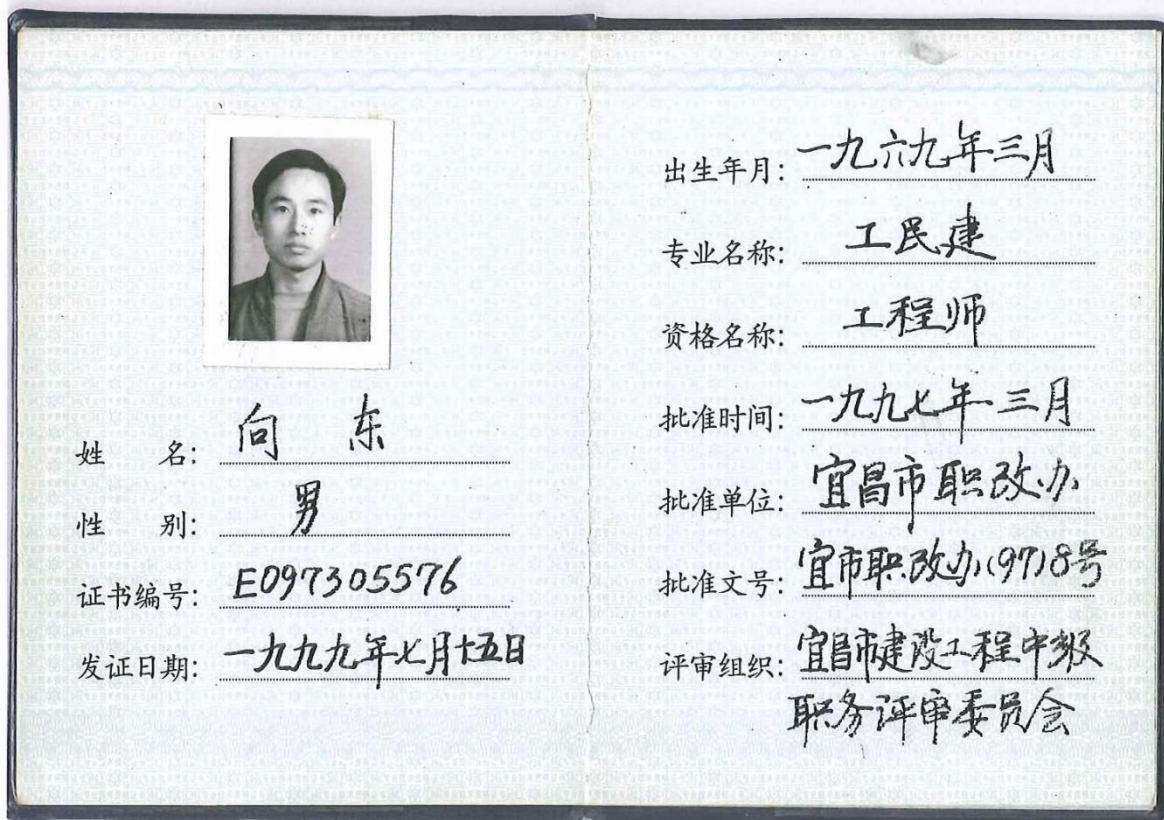 姓 名: 向 东
性 别: 男
证书编号: E097305576
发证日期: 一九九九年七月十五日
出生年月: 一九六九年三月
专业名称: 工民建
资格名称: 工程师
批准时间: 一九九七年三月
批准单位: 宜昌市职改办
批准文号: 宜市职改办(97)8号
评审组织: 宜昌市建设工程中级
职务评审委员会